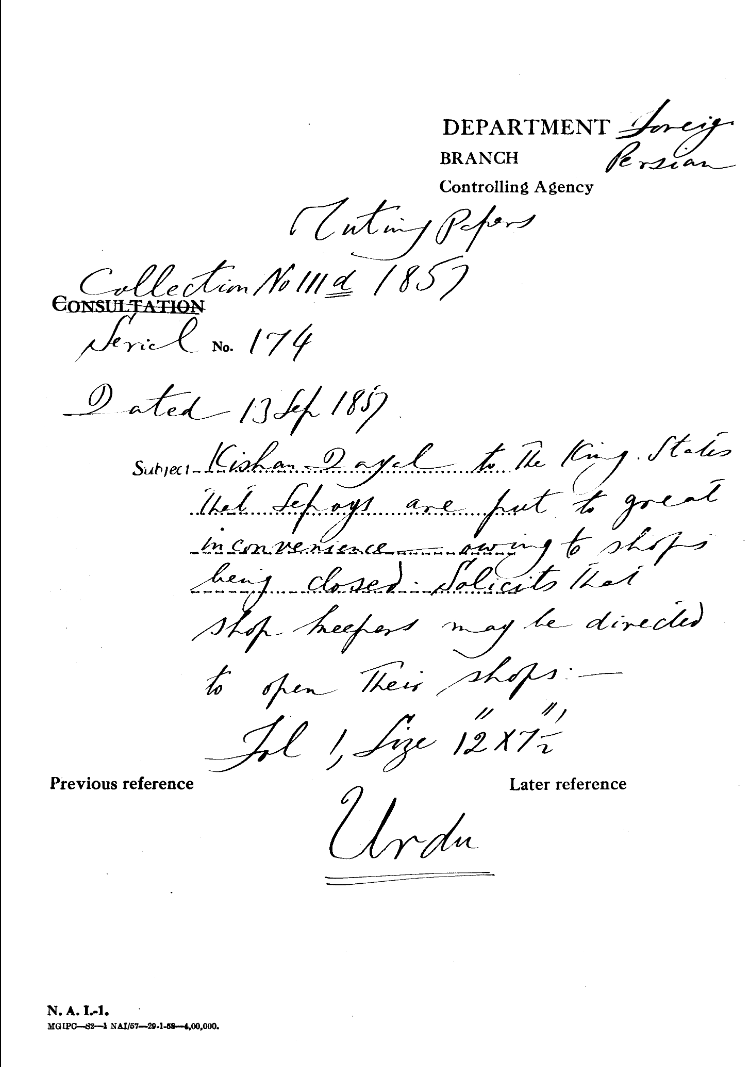 DEPARTMENT Foreig
BRANCH Persian
Controlling Agency
Mutiny Papers
Collection No 111 d 1857
CONSULTATION
Serial No. 174
Dated 13 Sep 1857
Subject Kishan Dayal to the King. States
that Sepoys are put to great
inconvenience — owing to shops
being closed. Solicits that
shop keepers may be directed
to open their shops:—
Fol 1, Size 12" X 7½"
Previous reference Later reference
Urdu
N. A. I.-1.
MGIPC—S2—1 NAI/57—29-1-58—4,00,000.